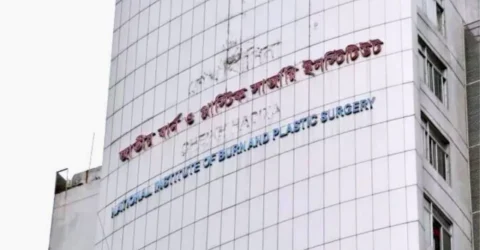 জাতীয় বার্ন ও প্লাস্টিক সার্জারি ইনস্টিটিউট
SHEIKH HASINA
NATIONAL INSTITUTE OF BURN AND PLASTIC SURGERY